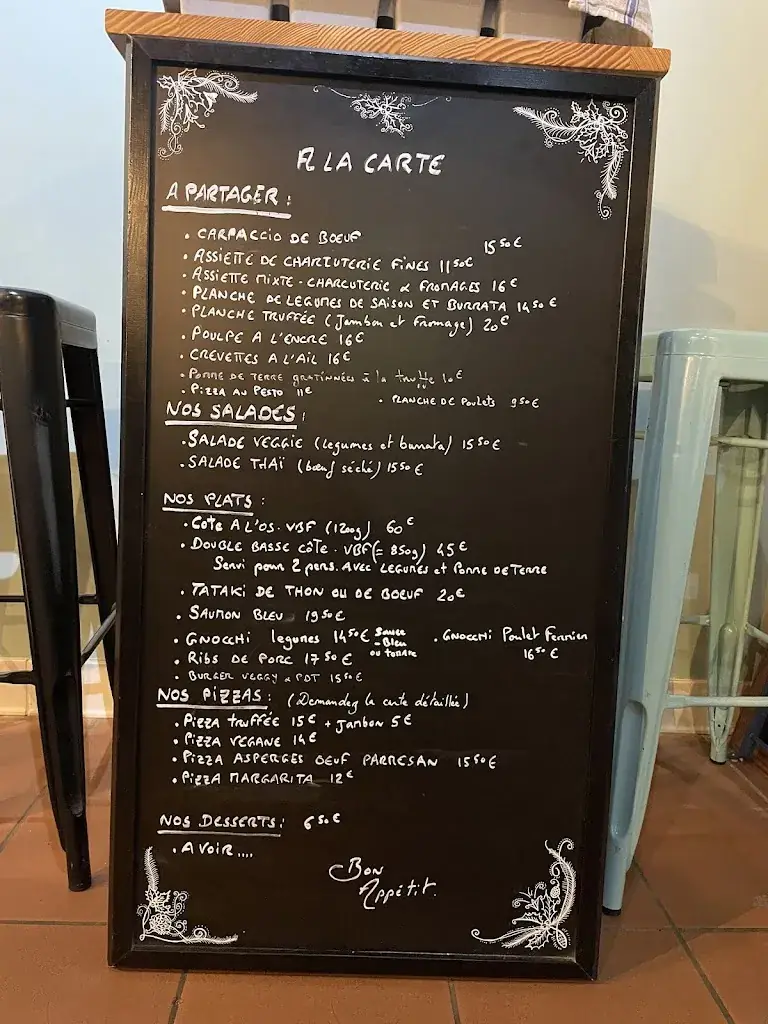 A LA CARTE
A PARTAGER :
• CARPACCIO DE BOEUF 15 50 €
• ASSIETTE DE CHARCUTERIE FINES 11 50 €
• ASSIETTE MIXTE - CHARCUTERIE & FROMAGES 16 €
• PLANCHE DE LEGUMES DE SAISON ET BURRATA 14 50 €
• PLANCHE TRUFFÉE (Jambon et fromage) 20 €
• POULPE A L'ENCRE 16 €
• CREVETTES A L'AIL 16 €
• POMME DE TERRE gratinnées à la truffe 10 €
• PIZZA AU PESTO 11 € • PLANCHE DE Poulets 9 50 €
NOS SALADES :
• SALADE VEGGIE (legumes et burrata) 15 50 €
• SALADE THAÏ (bœuf séché) 15 50 €
NOS PLATS :
• Côte A L'OS. VBF (1200g) 60 €
• DOUBLE BASSE CÔTE. VBF (= 850g) 45 €
Servi pour 2 pers. AVEC LEGUMES et POMME DE TERRE
• TATAKI DE THON OU DE BOEUF 20 €
• SAUMON BLEU 19 50 €
• GNOCCHI legumes 14 50 € Sauce - Bleu ou TOMATE • GNOCCHI Poulet Fermier 16 50 €
• RIBS DE PORC 17 50 €
• BURGER VEGGY & PDT 15 50 €
NOS PIZZAS : (Demandez la carte détaillée)
• PIZZA truffée 15 € + JAMBON 5 €
• PIZZA VEGANE 14 €
• PIZZA ASPERGES OEUF PARMESAN 15 50 €
• PIZZA MARGARITA 12 €
NOS DESSERTS : 6 50 €
• A VOIR ....
Bon
Appétit.